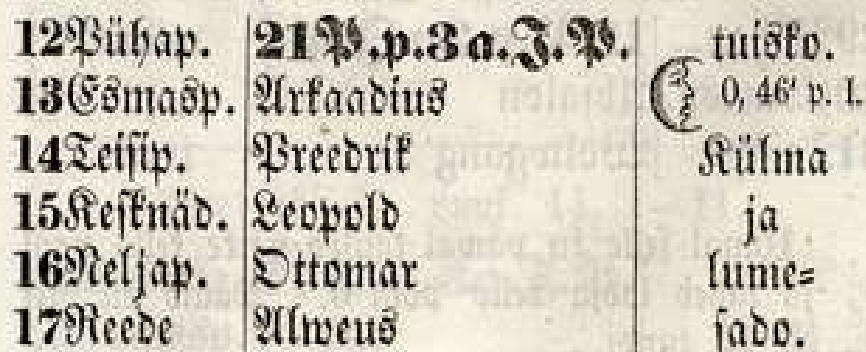 12 Pühap. 21 P. p. 3 a. J. P. tuisko.
13 Esmasp. Arkaadius 0, 46' p. l.
14 Teisip. Preedrik Külma
15 Keſknäd. Leopold ja
16 Neljap. Ottomar lume⸗
17 Reede Alweus ſado.